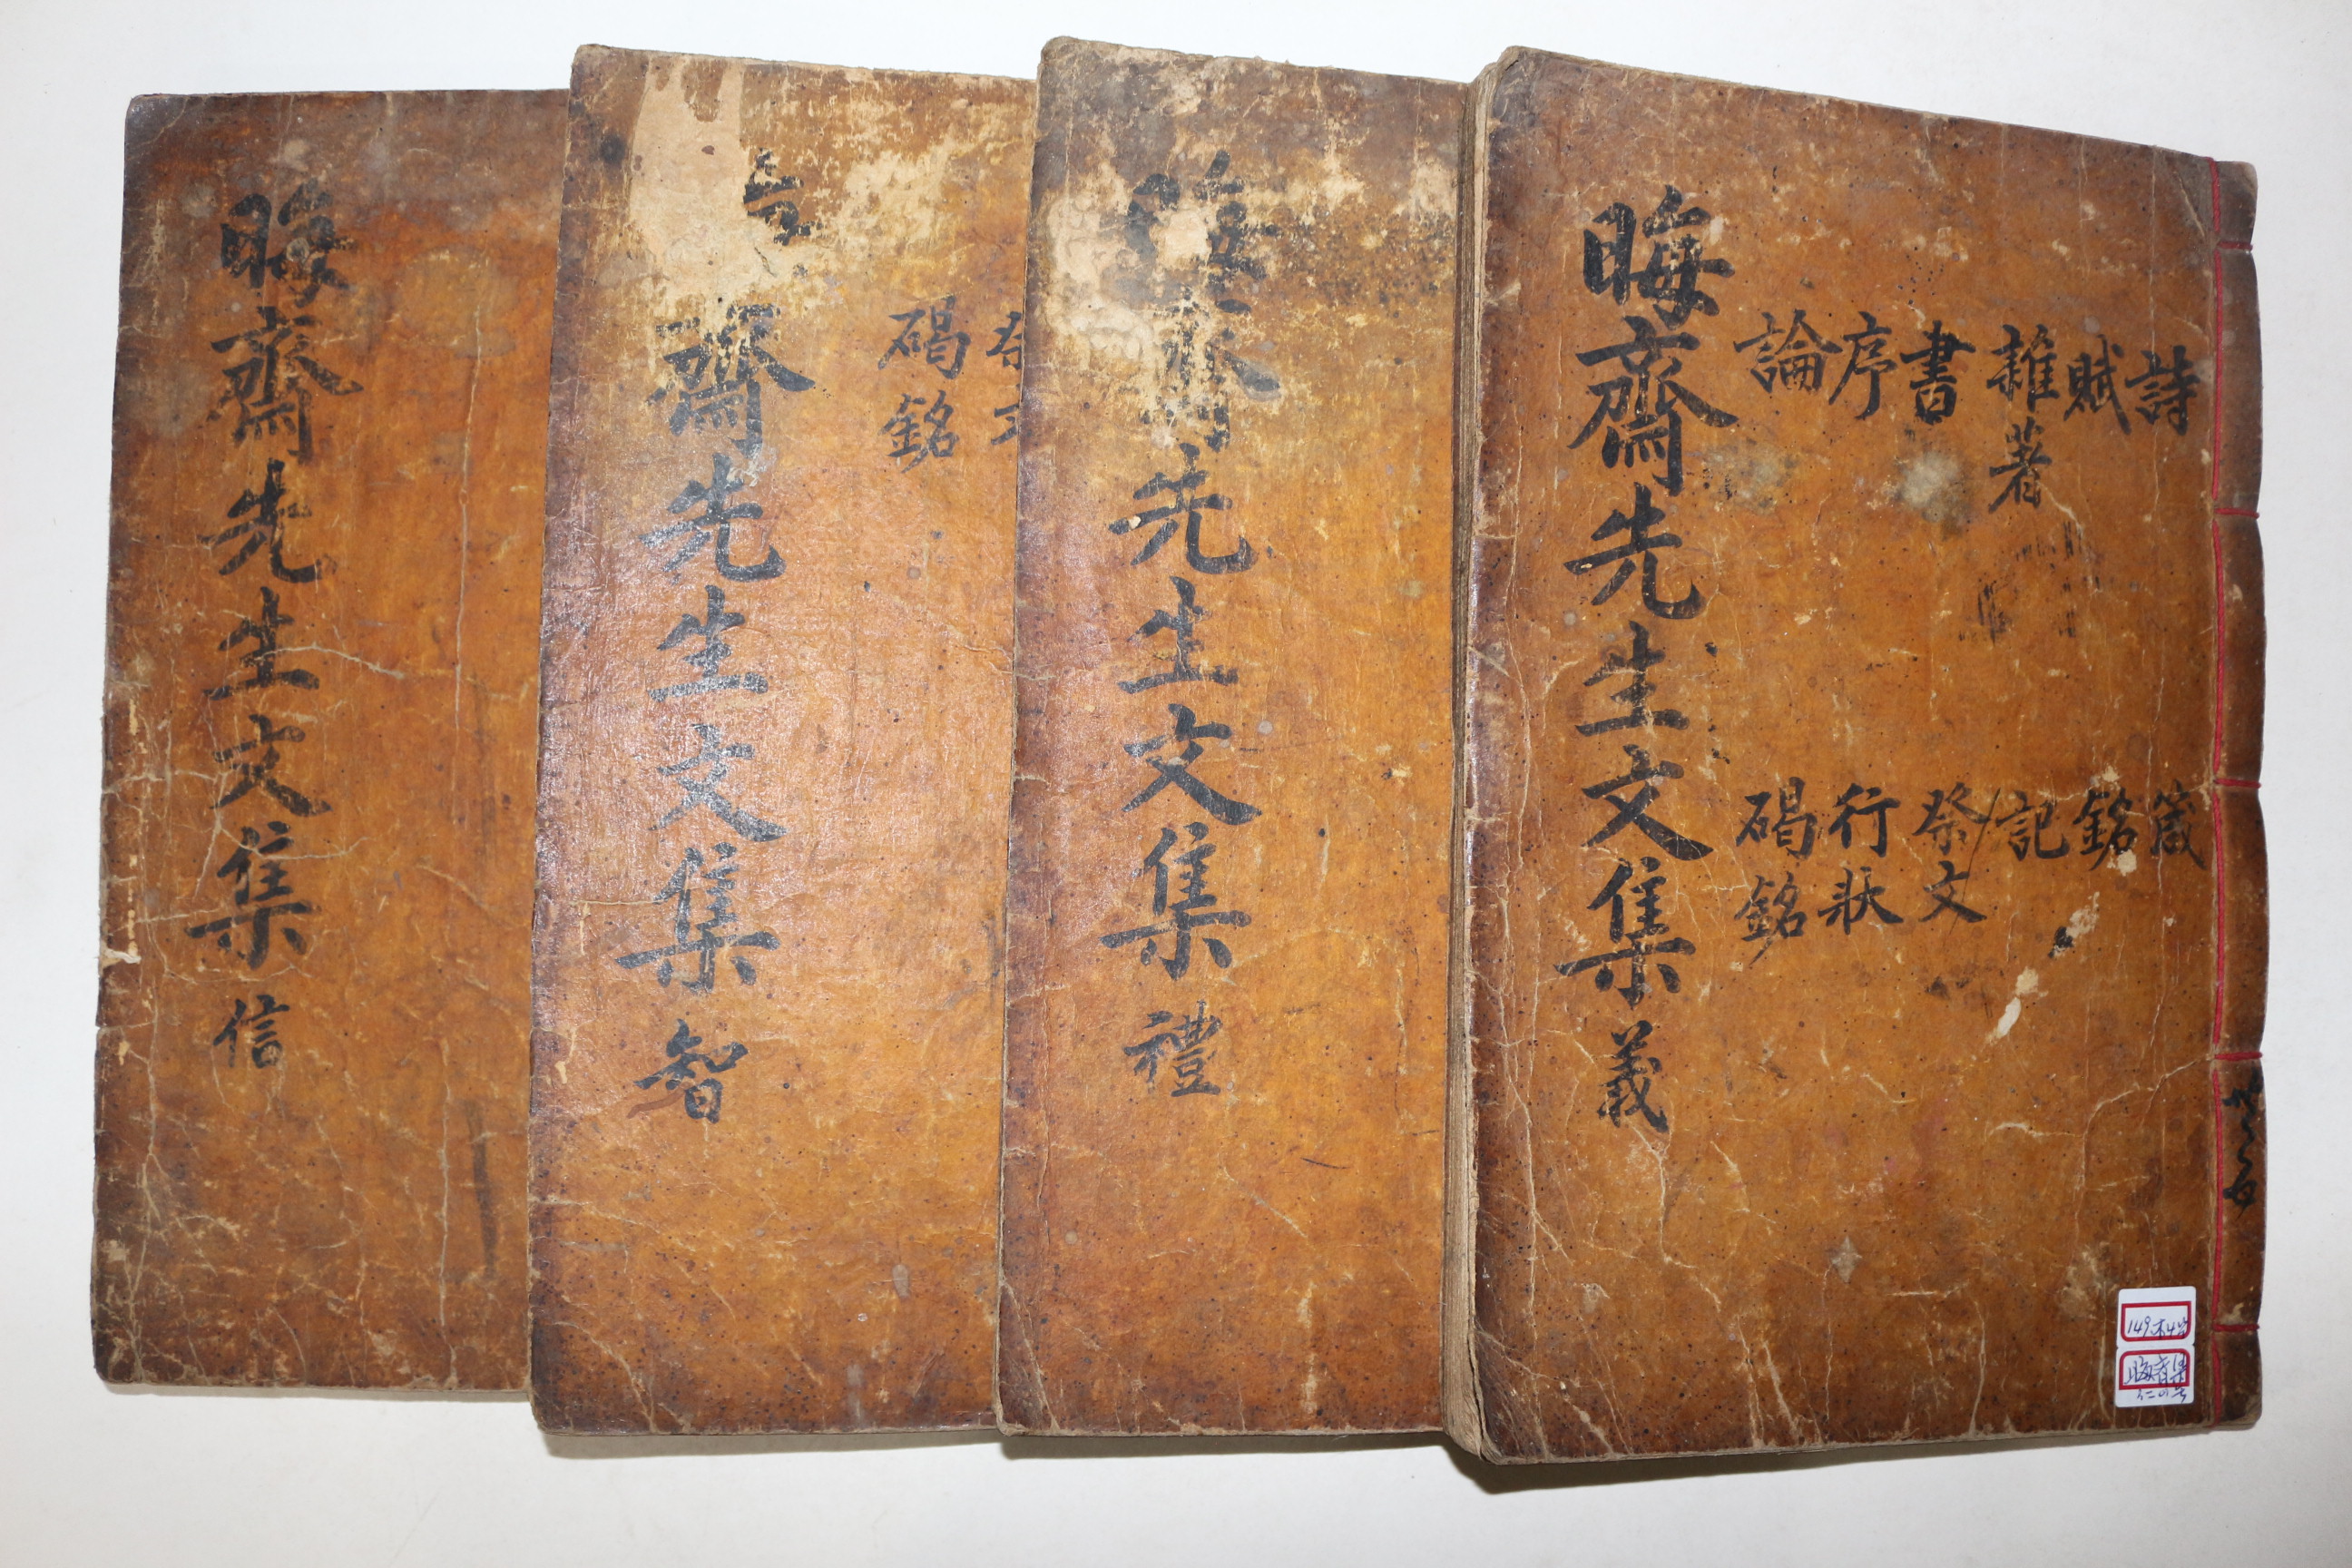 詩
賦
雜著
書
序
論
箴
銘
記
祭文
行狀
碣銘
晦齋先生文集 義
晦齋先生文集 禮
碣銘
齋先生文集 智
晦齋先生文集 信
149